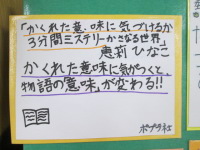 「かくれた意味に気づけるか
3分間ミステリーかさなる世界」
恵莉ひなこ
かくれた意味に気がつくと、
物語の意味が変わる!!
ポプラ社